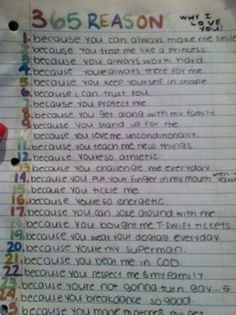 365 REASON WHY I LOVE YOU!
1. because you can always make me smile
2. because you treat me like a princess
3. because you always work hard
4. because youre always there for me
5. because you keep yourself in shape
6. because i can trust you
7. because you protect me
8. because you get along with my family.
9. because you stand up for me
10. because you love me unconditionally.
11. because you teach me new things.
12. because youre so athletic
13. because you challenge me everyday
14. because you put your finger in my mouth when
15. because you tickle me
16. because youre so energetic
17. because you can joke around with me
18. because you bought me T-Swift tickets.
19. because you wear your dogtags everyday.
20. because you're my superman.
21. because you bear me in GOD.
22. because you respect me & my family
23. because you're not gonna turn gay...
24. because you breakdance so good!
because you made